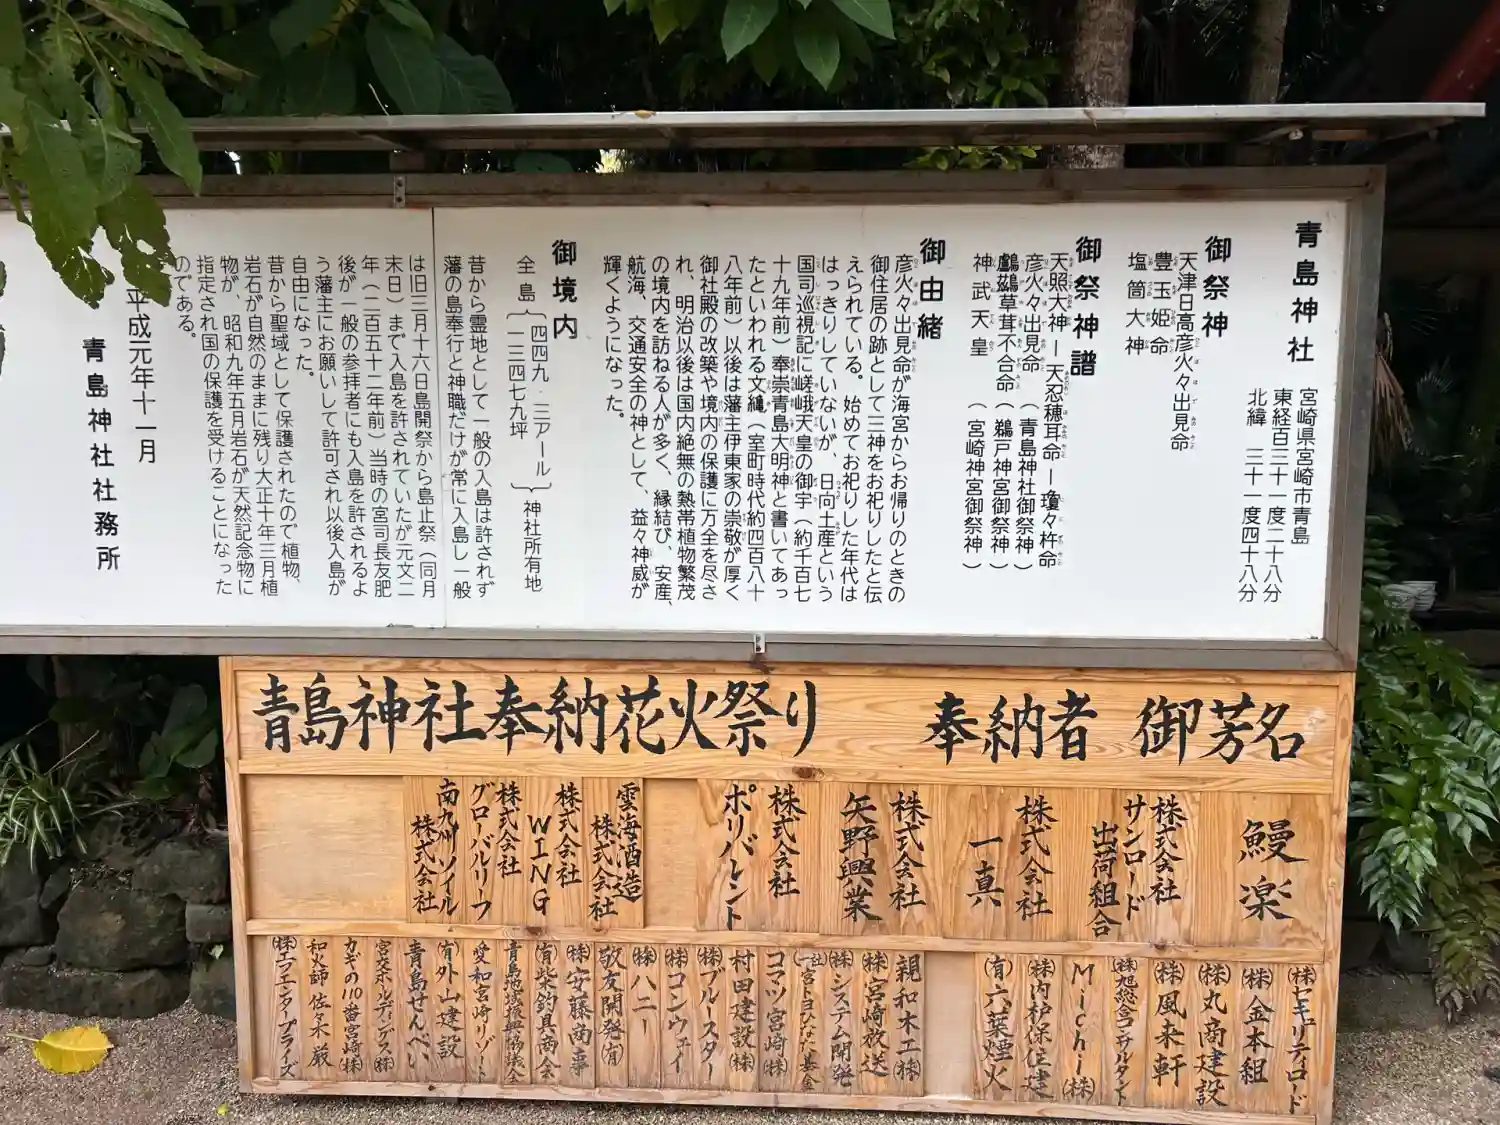 青島神社
宮崎県宮崎市青島
東経百三十一度二十八分
北緯 三十一度四十八分
御祭神
天津日高彦火々出見命
豊玉姫命
塩筒大神
御祭神譜
天照大神―天忍穂耳命―瓊々杵命
彦火々出見命(青島神社御祭神)
鸕鷀草葺不合命(鵜戸神宮御祭神)
神武天皇(宮崎神宮御祭神)
御由緒
彦火々出見命が海宮からお帰りのときの
御住居の跡として三神をお祀りしたと伝
えられている。始めてお祀りした年代は
はっきりしていないが、日向土産という
国司巡視記に嵯峨天皇の御宇(約千百七
十九年前)奉崇青島大明神と書いてあっ
たといわれる文亀(室町時代約四百八十
八年前)以後は藩主伊東家の崇敬が厚く
御社殿の改築や境内の保護に万全を尽さ
れ、明治以後は国内絶無の熱帯植物繁茂
の境内を訪ねる人が多く、縁結び、安産、
航海、交通安全の神として、益々神威が
輝くようになった。
御境内
全島
四四九.三アール
一三四七九坪
神社所有地
昔から霊地として一般の入島は許されず
藩の島奉行と神職だけが常に入島し一般
は旧三月十六日島開祭から島止祭(同月
末日)まで入島を許されていたが元文二
年(二百五十二年前)当時の宮司長友肥
後が一般の参拝者にも入島を許されるよ
う藩主にお願いして許可され以後入島が
自由になった。
昔から聖域として保護されたので植物、
岩石が自然のままに残り大正十年三月植
物が、昭和九年五月岩石が天然記念物に
指定され国の保護を受けることになった
のである。
平成元年十一月
青島神社社務所
青島神社奉納花火祭り 奉納者 御芳名
鰻楽
株式会社
サンロード
出荷組合
株式会社
一真
株式会社
矢野興業
株式会社
ポリバレント
雲海酒造
株式会社
株式会社
WING
株式会社
グローバルリーフ
南九州ソイル
株式会社
㈱セキュリティロード
㈱金本組
㈱丸商建設
㈱風来軒
㈱旭総合コンサルタント
Michi㈱
㈱内村保住建
㈲六葉煙火
親和木工㈱
㈱宮崎放送
㈱システム開発
(一社)宮トヨひなた基金
コマツ宮崎㈱
村田建設㈱
㈱ブルースター
㈱コンウェイ
㈱ハニー
敬友開発㈲
㈱安藤商事
㈲柴釣具商会
青島地域振興協議会
愛和宮崎リゾート
㈲外山建設
青島せんべい
宮交ホールディングス㈱
カギの110番宮崎㈱
和火師 佐々木厳
㈱エフエンタープライズ